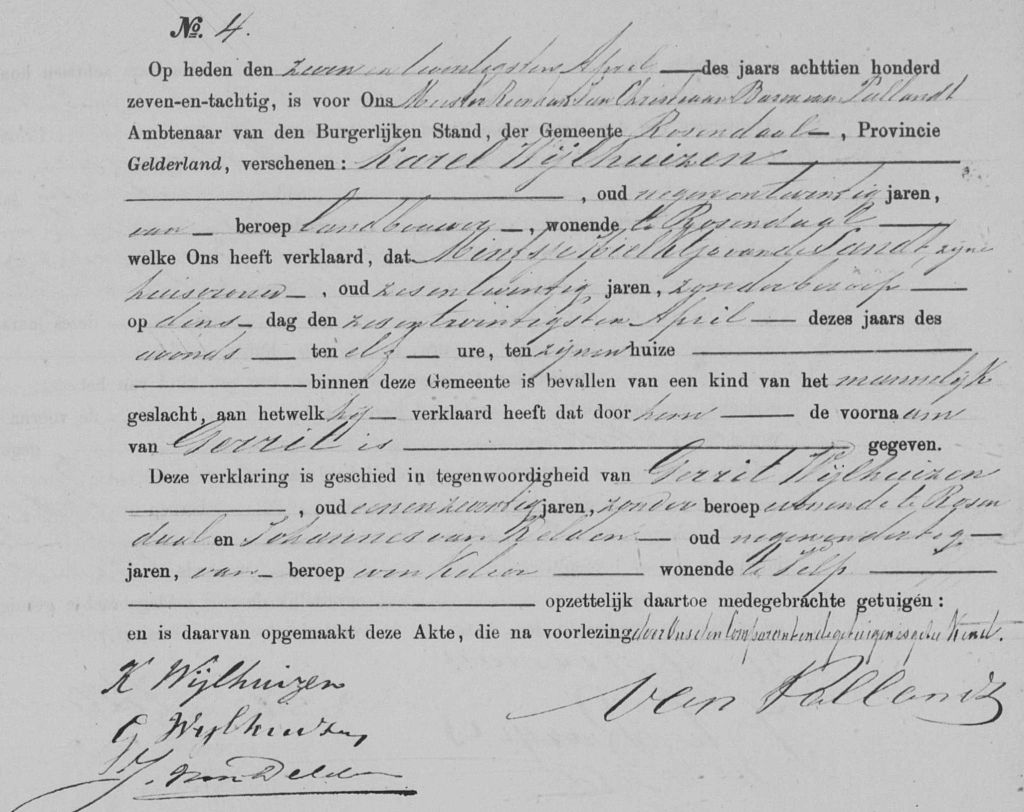 No. 4.
Op heden den zeven en twintigsten April des jaars achttien honderd
zeven-en-tachtig, is voor Ons Meester Christiaan Baron van Pallandt
Ambtenaar van den Burgerlijken Stand, der Gemeente Rosendaal, Provincie
Gelderland, verschenen: Karel Wijlhuizen
, oud negen en twintig jaren,
van beroep landbouwer, wonende te Rosendaal
welke Ons heeft verklaard, dat van de Sandt zijne
huisvrouw, oud zes en twintig jaren, zonder beroep
op dens dag den zes en twintigsten April dezes jaars des
avonds ten elf ure, ten zijnen huize
binnen deze Gemeente is bevallen van een kind van het mannelijk
geslacht, aan hetwelk hij verklaard heeft dat door hem de voornaam
van Gerrit is gegeven.
Deze verklaring is geschied in tegenwoordigheid van Gerrit Wijlhuizen
, oud jaren, zonder beroep wonende te Rosen
daal en Johannes van Delden oud negen en dertig
jaren, van beroep winkelier wonende te Velp
opzettelijk daartoe medegebrachte getuigen:
en is daarvan opgemaakt deze Akte, die na voorlezing door Ons, den Comparant en de getuigen is geteekend.
K Wijlhuizen
van Pallandt
G Wijlhuizen
J. van Delden